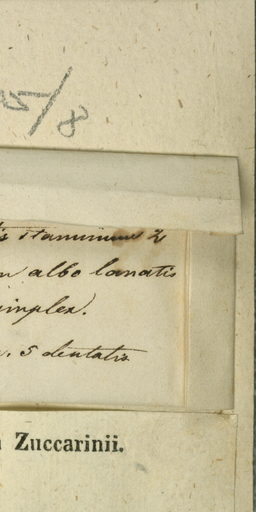 5/8
staminum 2
albo lanatis
simplex.
5 dentatis
Zuccarinii.